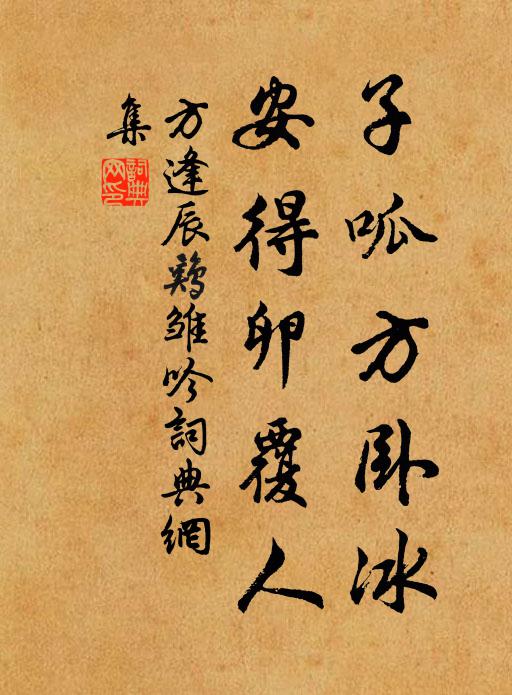 子呱方卧冰
安得卵覆人
方逢辰鷄雏吟詞典網
集
詞典网印